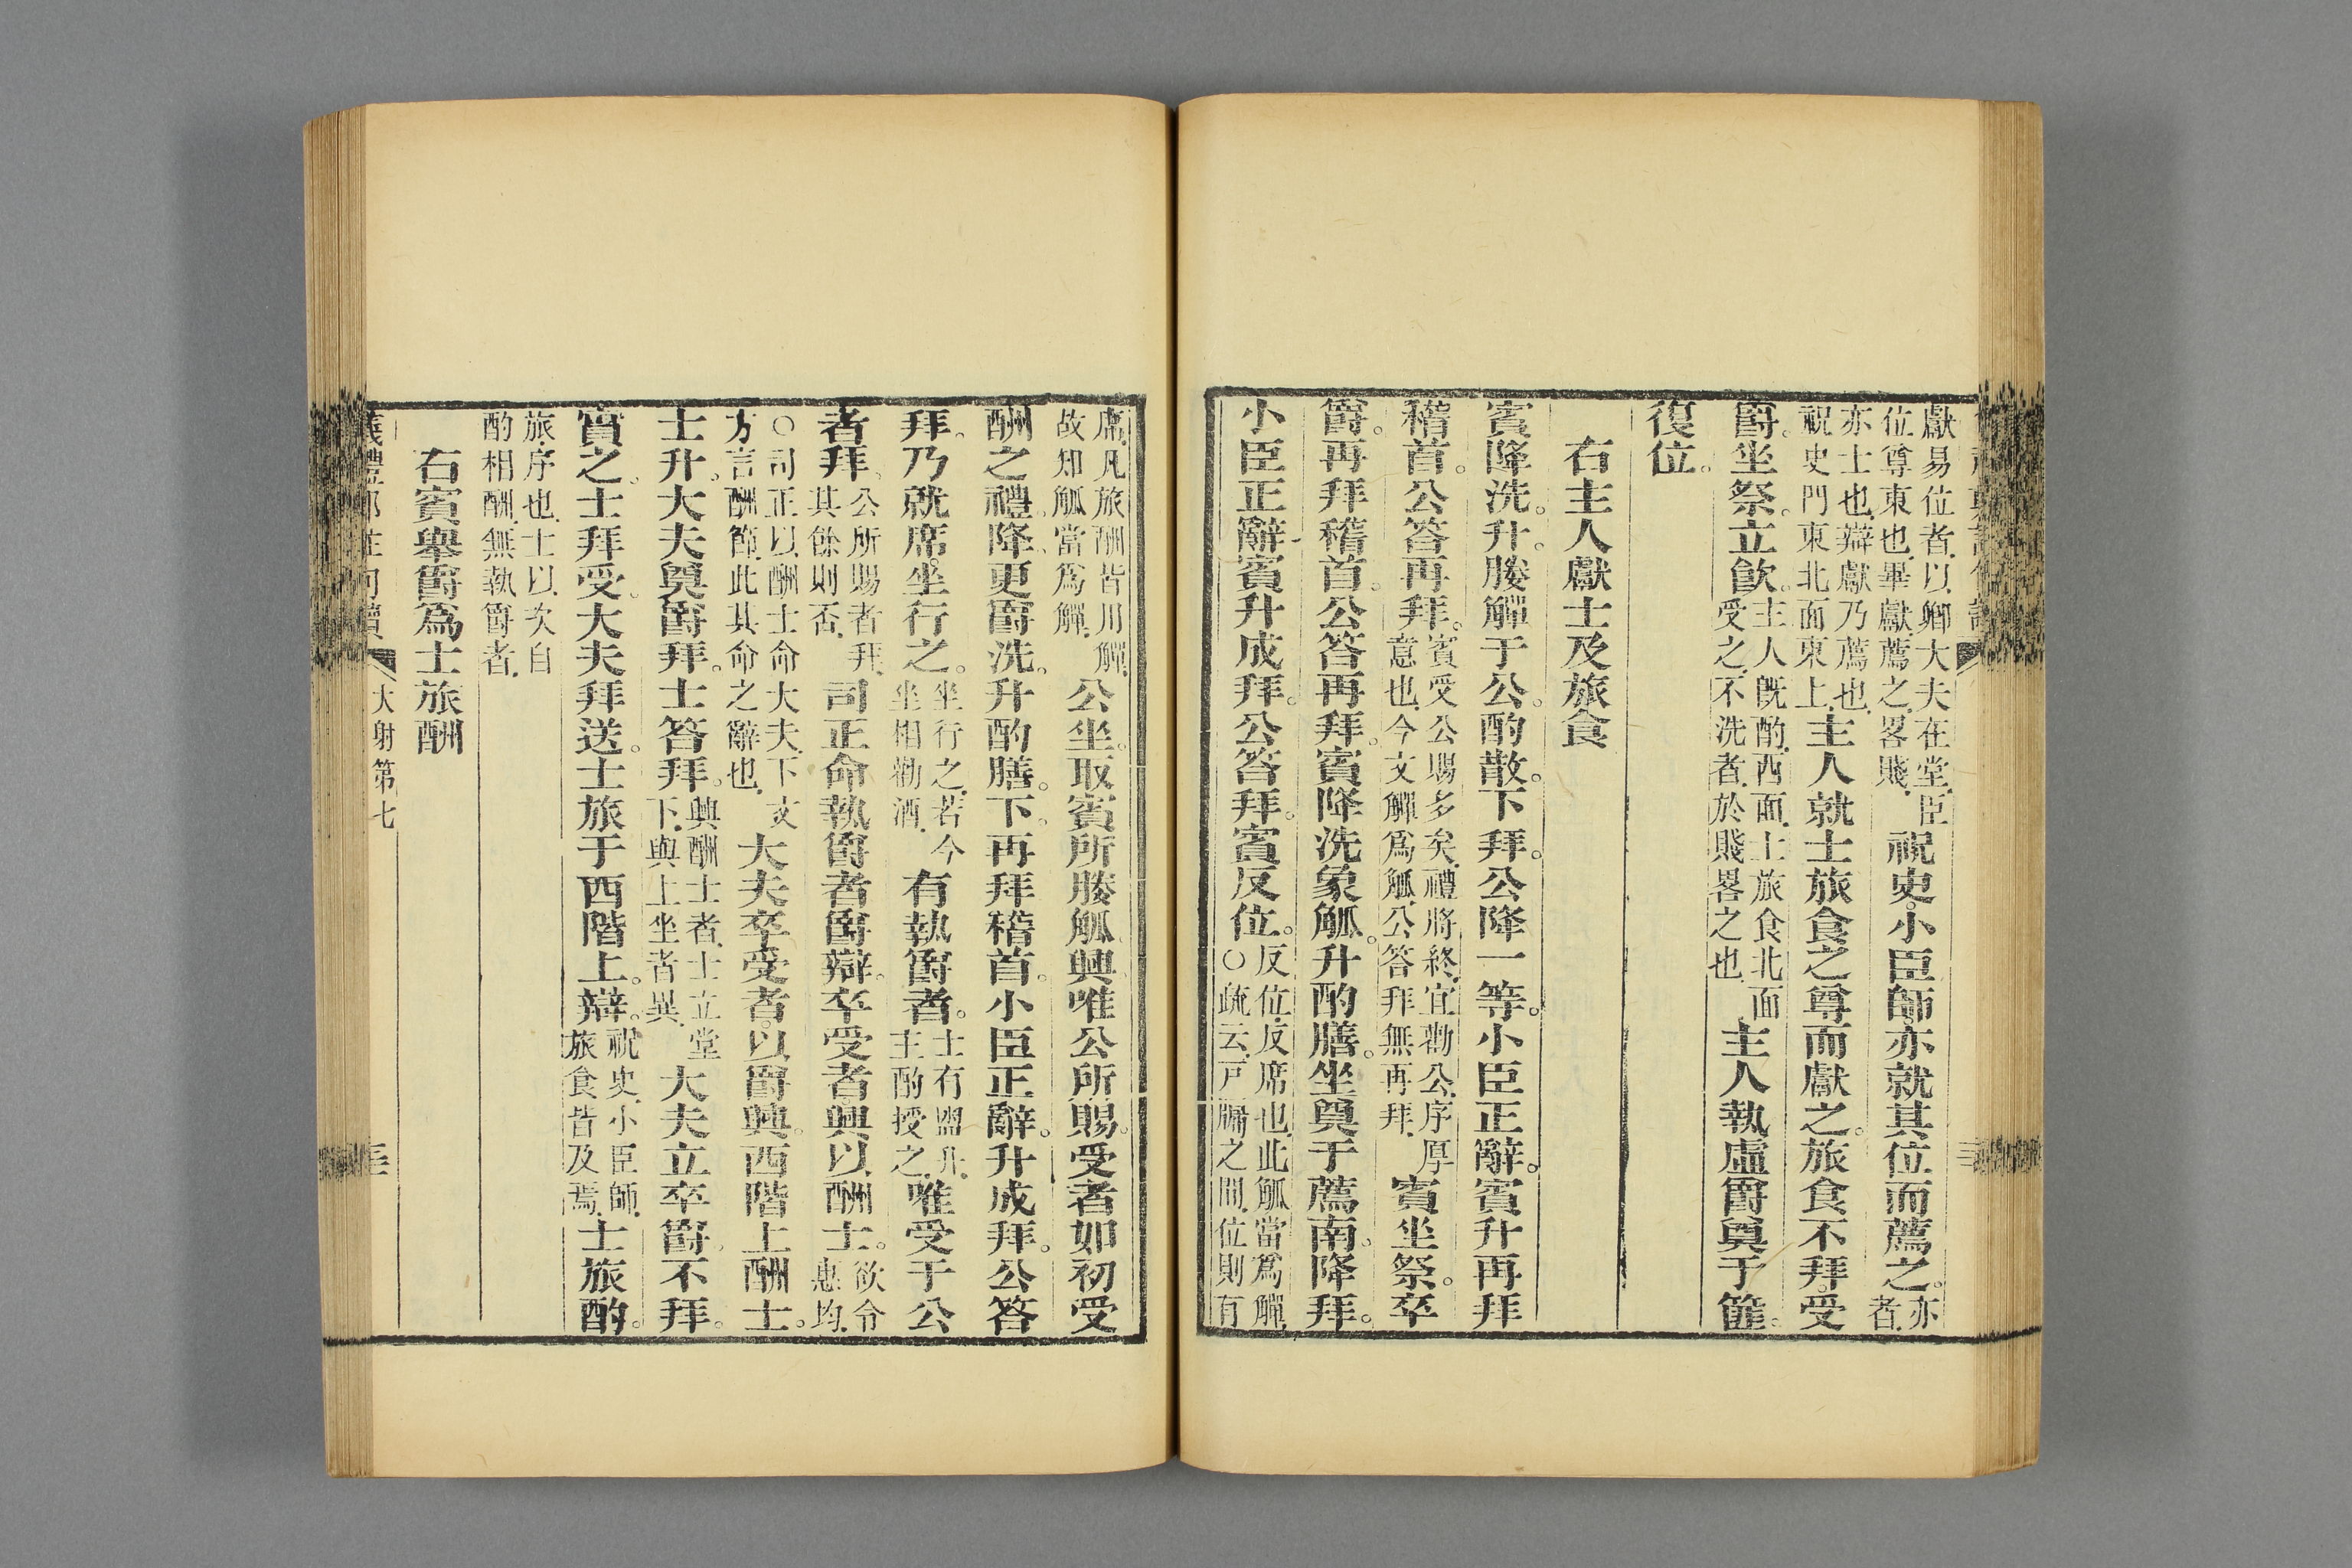 獻易位者.以卿大夫在堂.臣位尊東也.畢獻薦之.畧賤.祝史小臣師.亦就其位而薦之。亦者.
亦士也.辯獻乃薦也.祝史門東北面東上.主人就士旅食之尊而獻之。旅食不拜受
爵。坐祭。立飲。主人既酌.西面.士旅食北面受之.不洗者.於賤畧之也.主人執虛爵奠于篚。
復位。
右主人獻士及旅食
賓降洗。升。媵觶于公。酌散。下拜。公降一等。小臣正辭。賓升再拜
稽首。公答再拜。賓受公賜多矣.禮將終.宜勸公.序厚意也.今文觶爲觚.公答拜無再拜.賓坐祭。卒
爵。再拜稽首。公答再拜。賓降洗象觚。升酌膳。坐奠于薦南。降拜。
小臣正辭.賓升成拜。公答拜。賓反位。反位.反席也.此觚當爲觶.○疏云.戸牖之間.位則有
席.凡旅酬皆用觶.故知觚當爲觶.公坐。取賓所媵觚。興。唯公所賜。受者如初受
酬之禮。降。更爵洗。升酌膳。下。再拜稽首。小臣正辭。升成拜。公答
拜。乃就席。坐行之。坐行之.若今坐相勸酒.有執爵者。士有盥升.主酌授之.唯受于公
者拜。公所賜者拜.其餘則否.司正命執爵者爵辯。卒受者。興以酬士。欲令惠均.
○司正以酬士命大夫.下文方言酬節.此其命之辭也.大夫卒受者。以爵興。西階上酬士。
士升。大夫奠爵拜。士答拜。興酬士者.士立堂下.與上坐者異.大夫立卒爵。不拜。
實之。士拜受。大夫拜送。士旅于西階上。辯。祝史.小臣師.旅食皆及焉.士旅酌。
旅.序也.士以次自酌相酬.無執爵者.
右賓舉爵爲士旅酬
大射第七